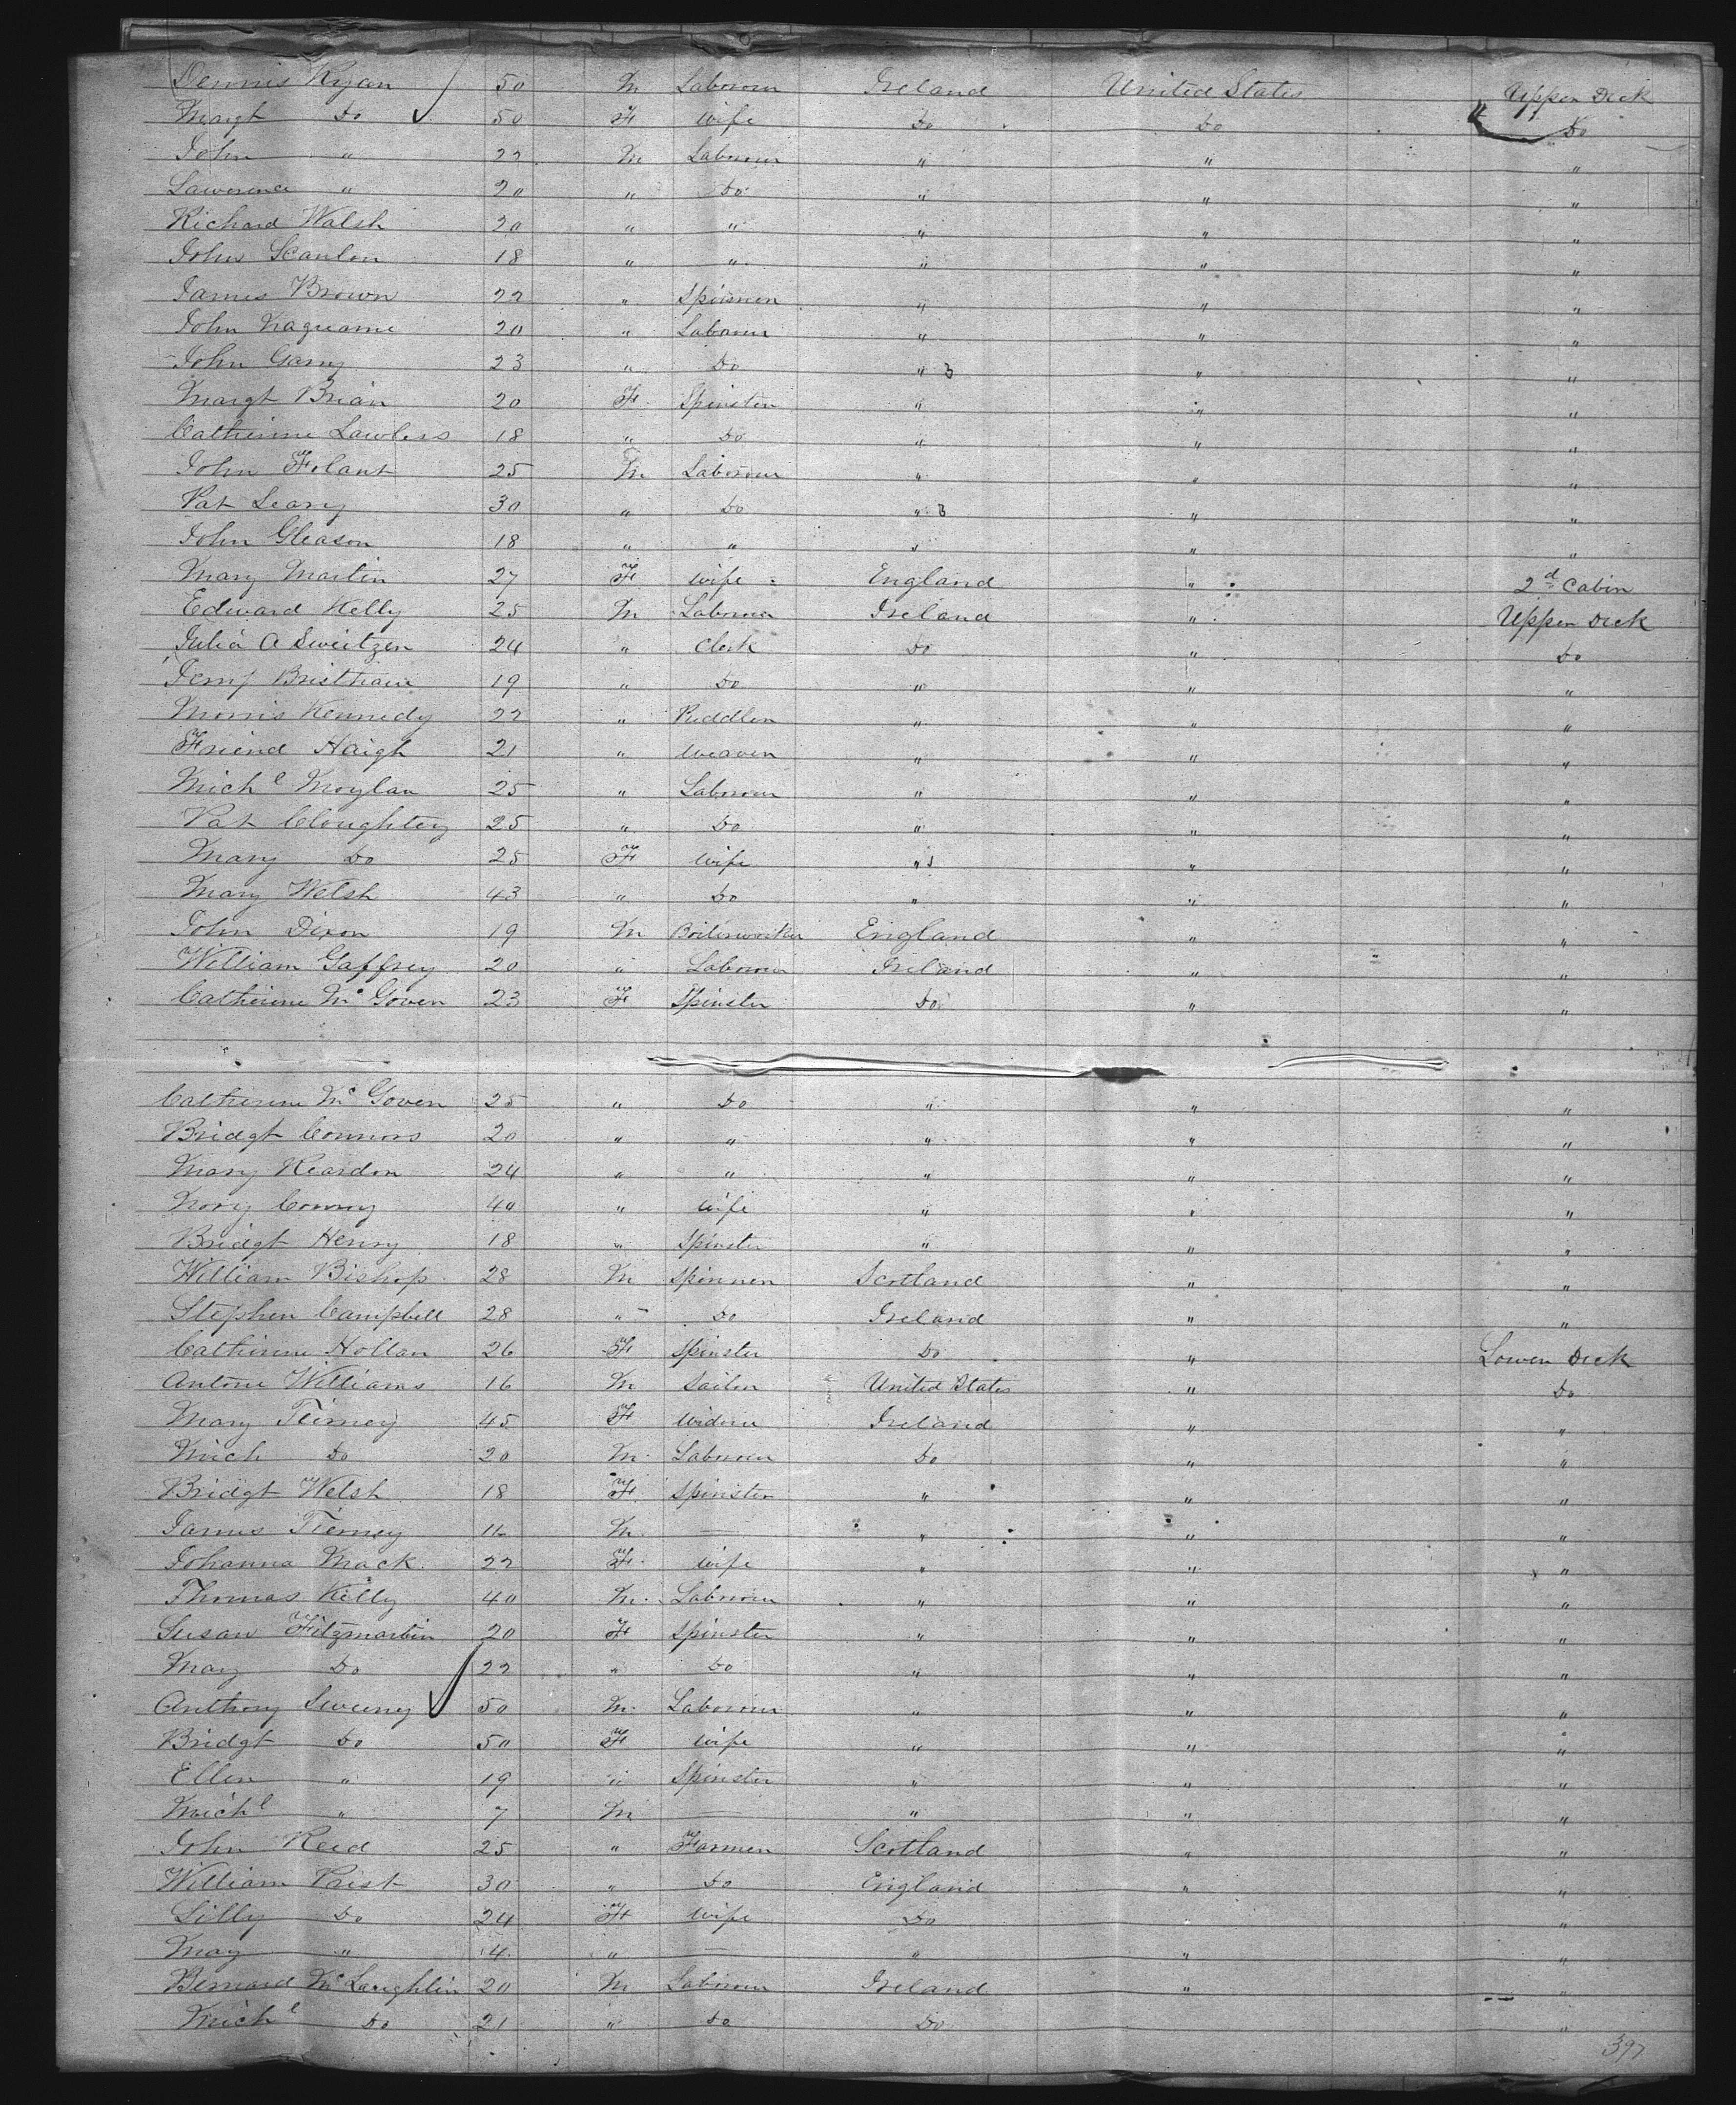 Dennis Ryan 50 M Laborour Ireland United States Upper Deck
Margt Do 50 F Wife Do Do Do
John " 22 M Laborour " " "
Lawerence " 20 " Do " " "
Richard Walsh 20 " " " " "
John Scanlon 18 " " " " "
James Brown 22 " " " "
John 20 " Laborour " " "
John Garry 23 " Do " " "
Margt Brian 20 F Spinster " " "
Catherine Lawless 18 " Do " " "
John Folant 25 M Laborour " " "
Pat Leary 30 " Do " " "
John Gleason 18 " " " " "
Mary Martin 27 F Wife England " 2d Cabin
Edward Kelly 25 M Laborour Ireland " Upper Deck
Julia A Sweitzer 24 " Clerk Do " Do
19 " Do " " "
Morris Kennedy 22 " Puddler " " "
Friend Haigh 21 " Weaver " " "
Michl Moylan 25 " Laborour " " "
Pat Cloughtey 25 " Do " " "
Mary Do 25 F Wife " " "
Mary Welsh 43 " Do " " "
John Dixon 19 M England " "
William Gaffrey 20 " Laborour Ireland " "
Catherine Mc Goven 23 F Spinster Do " "
Catherine Mc Goven 25 " Do " " "
Bridgt Connors 20 " " " " "
Mary Reardon 24 " " " " "
40 " Wife " " "
Bridgt Henry 18 " Spinster " " "
William Bishop 28 M Spinner Scotland " "
Stephen Campbell 28 " Do Ireland " "
Catherine Hollan 26 F Spinster Do " Lower Deck
Antone Williams 16 M Sailor United States " Do
Mary Tierney 45 F Widow Ireland " "
Mich Do 20 M Laborour Do " "
Bridgt Welsh 18 F Spinster " " "
James Tierney M — " " "
Johanna Mack 22 F Wife " " "
Thomas Kelly 40 M Laborour " " "
Susan Fitzmartin 20 F Spinster " " "
Mary Do 22 " Do " " "
Anthony Sweeny 50 M Laborour " " "
Bridgt Do 50 F Wife " " "
Ellen " 19 " Spinster " " "
Michl " 7 M — " " "
John Reid 25 " Farmer Scotland " "
William Prist 30 " Do England " "
Lilly Do 24 F Wife Do "
May " 4 " — " " "
Bernard Mc Laughlin 20 M Laborour Ireland " "
Michl Do 21 " Do Do "
397